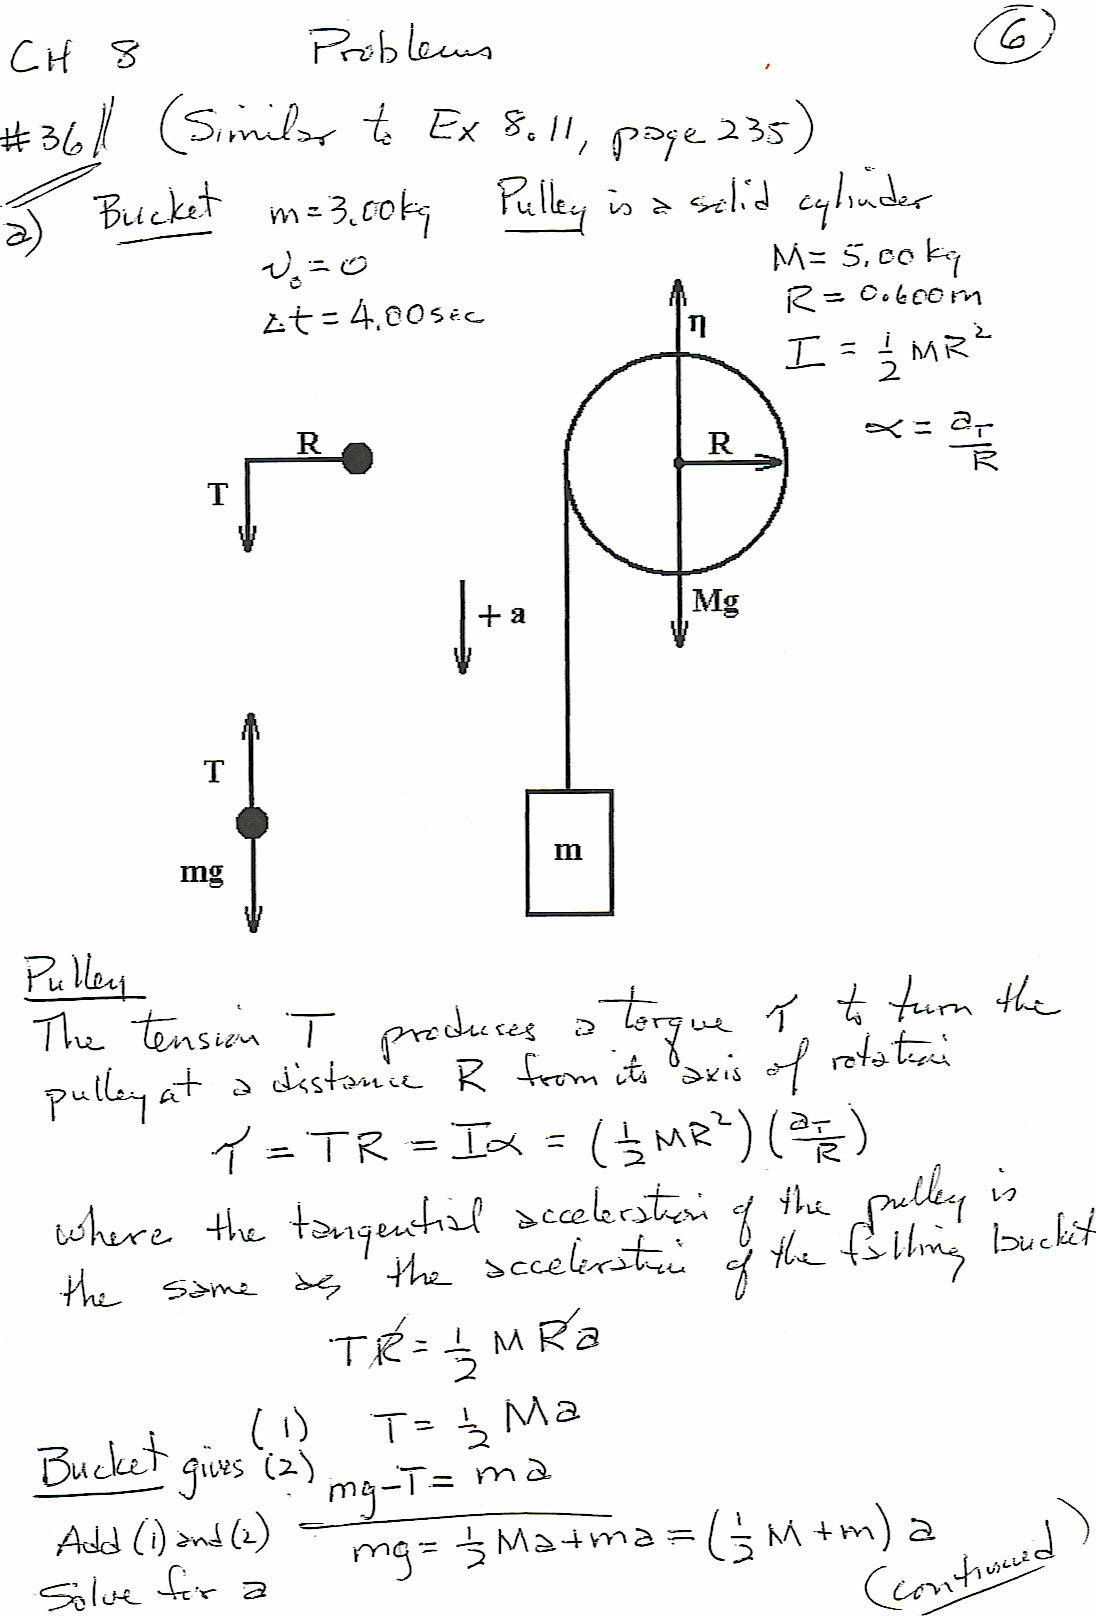 CH 8 Problems 6
#36 (Similar to Ex 8.11, page 235)
a) Bucket m=3.00kg Pulley is a solid cylinder
v₀=0 M= 5.00kg
Δt=4.00sec R= 0.600m
η
I = 1/2 MR²
α = a_T/R
R R
T
Mg
+ a
T
m
mg
Pulley
The tension T produces a torque τ to turn the
pulley at a distance R from its axis of rotation
τ = TR = Iα = (1/2 MR²)(a_T/R)
where the tangential acceleration of the pulley is
the same as the acceleration of the falling bucket
TR = 1/2 MRa
(1) T= 1/2 Ma
Bucket gives (2) mg-T= ma
Add (1) and (2) mg= 1/2 Ma+ma=(1/2 M+m) a
Solve for a (continued)